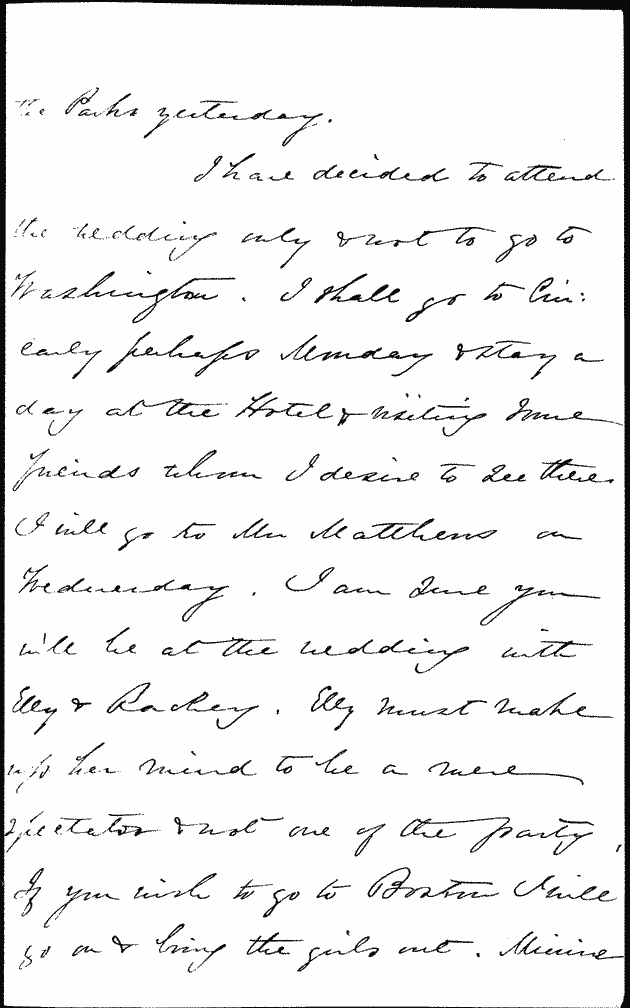 the Parks yesterday.
I have decided to attend
the wedding only & not to go to
Washington. I shall go to Cin:
early perhaps Monday & stay a
day at the Hotel & visiting some
friends whom I desire to see there
I will go to Mrs Matthews on
Wednesday. I am sure you
will be at the wedding with
Elly & Rockey. Elly must make
up her mind to be a mere
spectator & not one of the party.
If you wish to go to Boston I will
go on & bring the girls out. Minnie